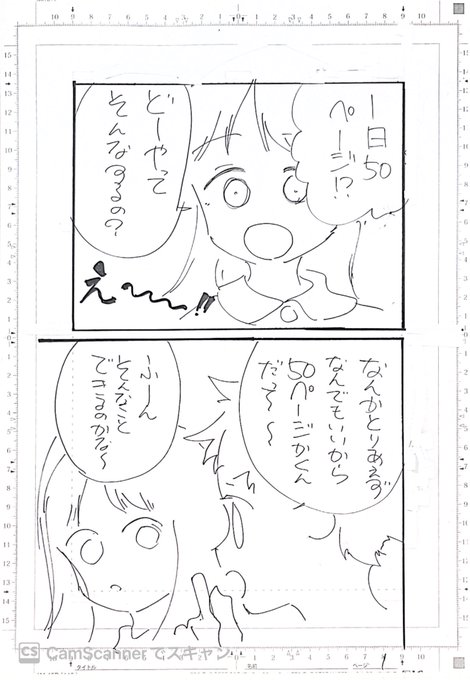 一日50
ページ!?
どーやって
そんなするの?
えー〜!!
なんかとりあえず
なんでもいいから
50ページかくん
だよ〜〜
ふーん
そんなこと
できるのかな〜
CS CamScanner でスキャン
タイトル
名前
ページ 1